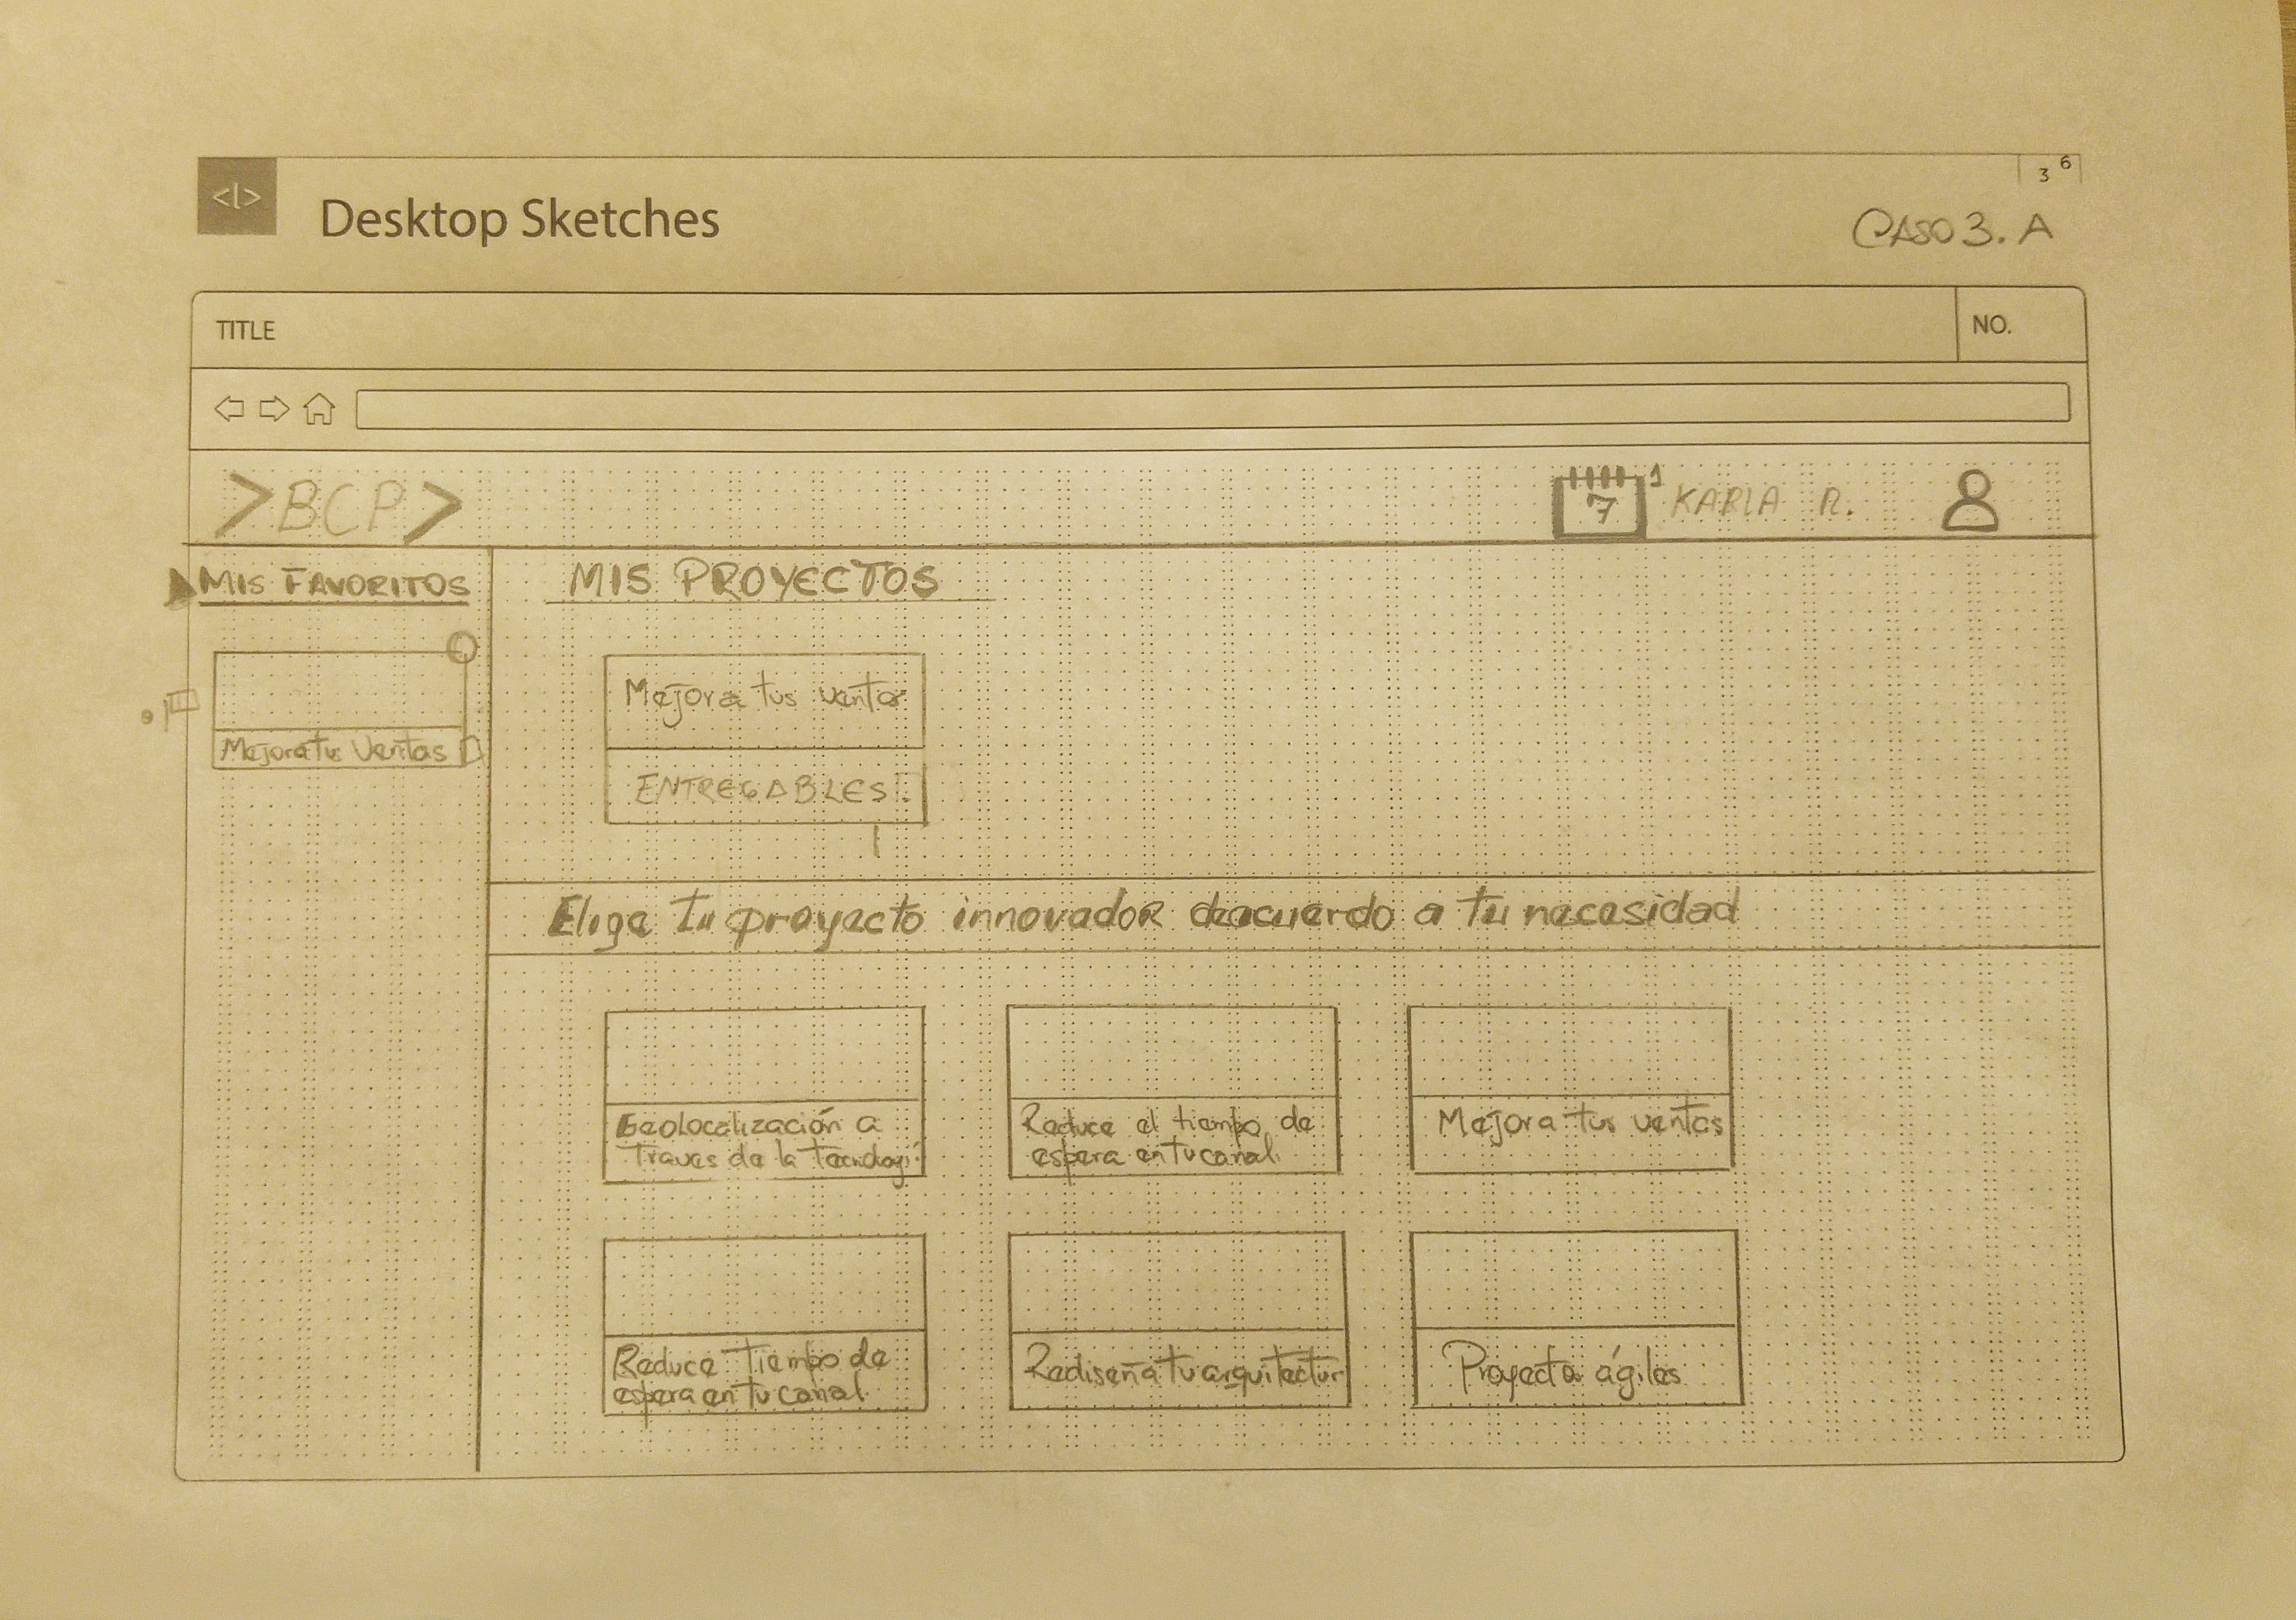 <|>
Desktop Sketches
3 6
CASO 3. A
TITLE
NO.
>BCP>
7
1
KARLA R.
MIS FAVORITOS
Mejora tus Ventas
MIS PROYECTOS
Mejora tus ventas
ENTREGABLES
Elige tu proyecto innovador deacuerdo a tu necesidad
Geolocalización a
traves de la tecnologí
Reduce el tiempo de
espera en tu canal.
Mejora tus ventas
Reduce tiempo de
espera en tu canal.
Rediseña tu arquitectur
Proyecto ágiles